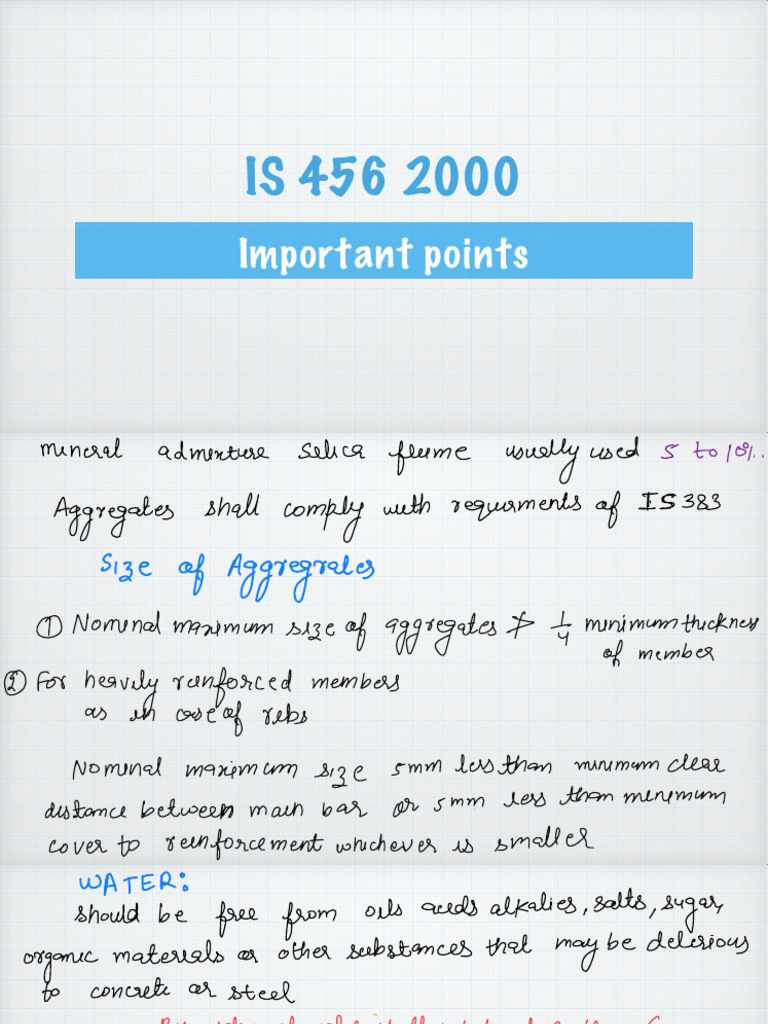 IS 456 2000
Important points
mineral admixture selica fume usually used 5 to 10%.
Aggregates shall comply with requirments of IS 383
Size of Aggregrates
① Nominal maximum size of aggregates ≯ 1/4 minimum thickness
of member
② For heavily reinforced members
as in case of ribs
Nominal maximum size 5mm less than minimum clear
distance between main bar or 5mm less than minimum
cover to reinforcement whichever is smaller
WATER:
should be free from oils acids alkalies, salts, sugar,
organic materials or other substances that may be delerious
to concrete or steel